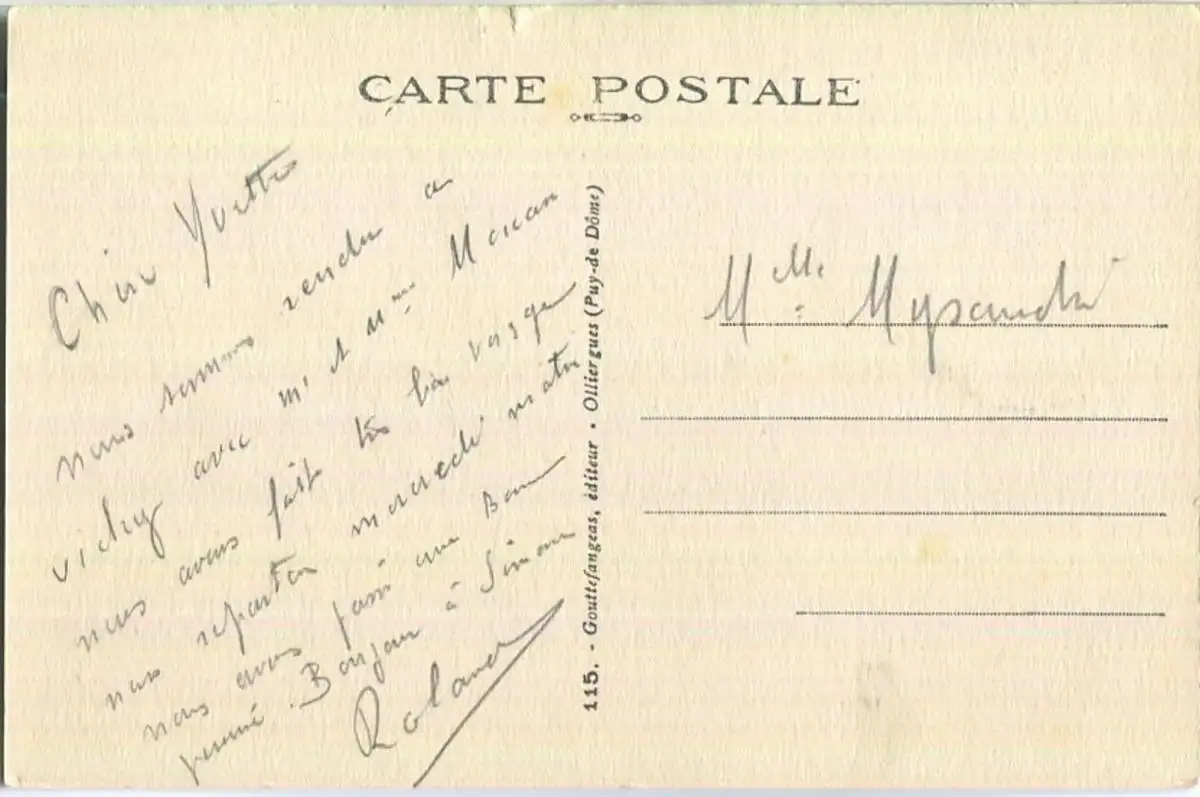 CARTE POSTALE
Chère Yvette
nous sommes rendu a
vichy avec mr et mme Moican
nous avons fait très bon voyage
nous reparton mercredi matin
nous avons passé une Bonne
Bonjour à Simone
Roland
115. - Gouttefangeas, éditeur • Olliergues (Puy-de Dôme)
Melle